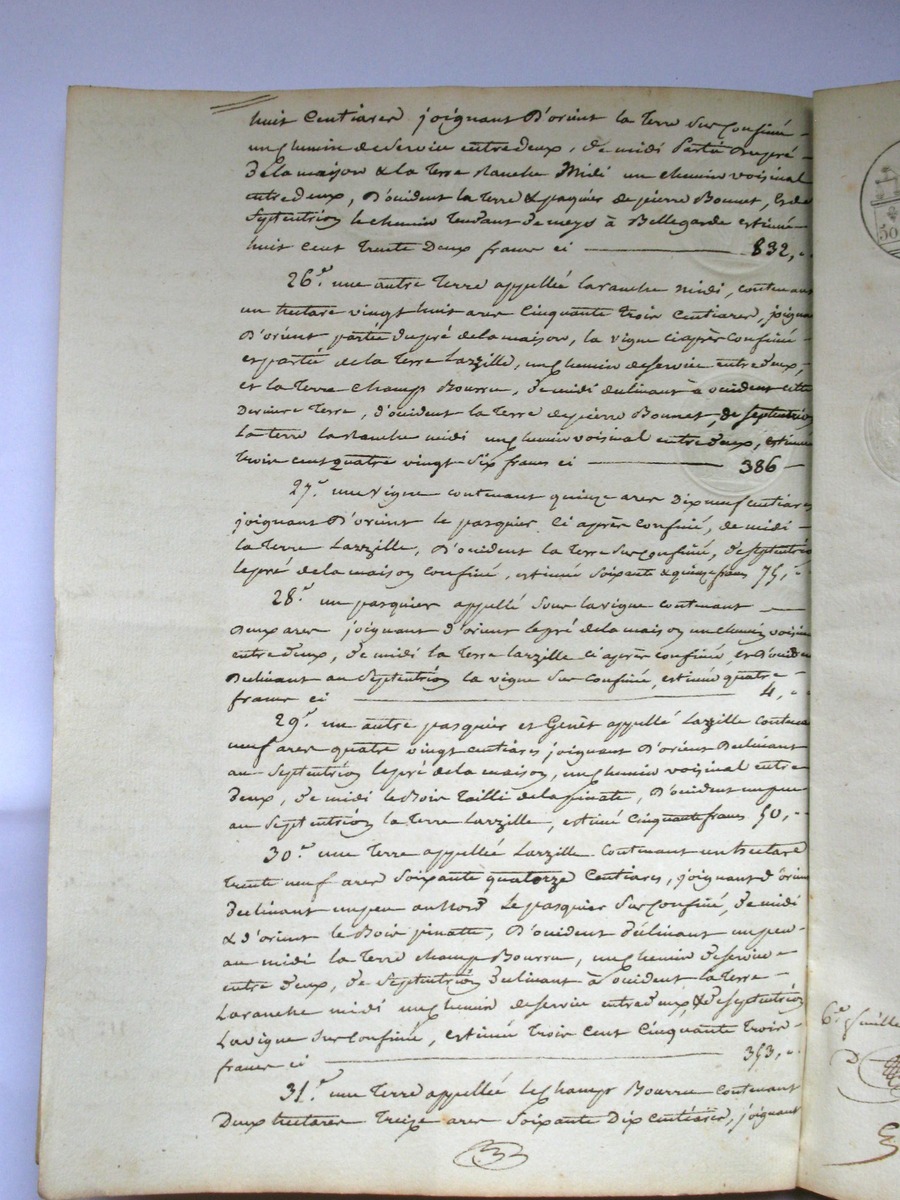 huit Centiares joignant D'orient la Terre Sur Confiné
un chemin de Service entre deux, de midi partie du pré
de la maison & la Terre ranche Midi un chemin voisinal
entre deux, D'occident la Terre & paquier de pierre Bonnet, & de
Septentrion le chemin Tendant de meys à Bellegarde estimée
huit Cent Trente Deux francs ci 832, "
26.e une autre Terre appellée la ranche midi, contenant
un hectare vingt huit ares Cinquante Trois Centiares, joignant
D'orient, partie du pré de la maison, la vigne ci après Confinée
et partie de la Terre Larzille, un chemin de service entre deux,
et la Terre Champ Bourru, de midi déclinant à occident cette
Derniere Terre, d'occident la Terre de pierre Bonnet, de Septentrion
la Terre la ranche midi un chemin voisinal entre deux, estimée
Trois cent quatre vingt Six francs ci 386
27.e une Vigne contenant quinze ares Dix neuf centiares
joignant D'orient le pasquier Ci après Confiné, de midi
la Terre Larzille, D'occident la Terre Sur Confiné, de Septentrion
le pré de la maison Confiné, estimée Soixante & quinze francs 75, "
28.e un pasquier appellé Sous la vigne contenant
Deux ares joignant d'orient le pré de la maison un chemin voisinal
entre deux, de midi la Terre larzille ci après confiné, et D'occident
Déclinant au Septentrion la vigne Sur Confiné, estimé quatre
francs ci 4, "
29.e un autre pasquier et Genêt appellé Larzille contenant
neuf ares quatre vingt centiares joignant D'orient Déclinant
au Septentrion le pré de la maison, un chemin voisinal entre
deux, de midi le Bois Taillis de la pinate, D'occident un peu
au Septentrion la Terre Larzille, estimé Cinquante francs 50, "
30.e une Terre appellée Larzille Contenant un hectare
Trente neuf ares Soixante quatorze Centiares, joignant d'orient
déclinant un peu au Nord Le pasquier Sur Confiné, de midi
& d'orient le Bois pinatte, D'occident déclinant un peu
au midi la Terre Champ Bourru, un chemin de service
entre deux, de Septentrion déclinant à occident la Terre
Laranche midi un chemin de service entre deux, & de septentrion
La vigne Sur Confiné, estimée Trois Cent Cinquante Trois
francs ci 353, "
31.e une Terre appellée le Champ Bourru contenant
Deux hectares Treize ares Soixante Dix centiares, joignant
6.e feuille
50